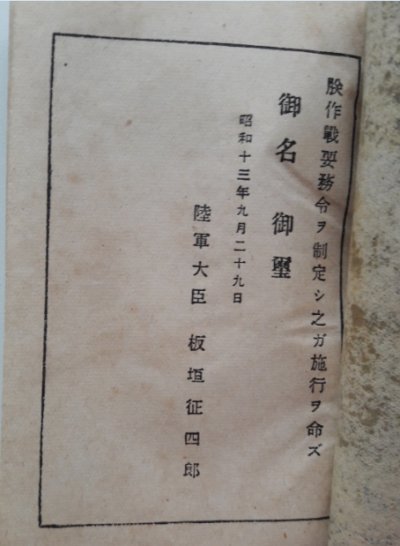 朕作戰要務令ヲ制定シ之ガ施行ヲ命ズ
御名御璽
昭和十三年九月二十九日
陸軍大臣 板垣征四郎